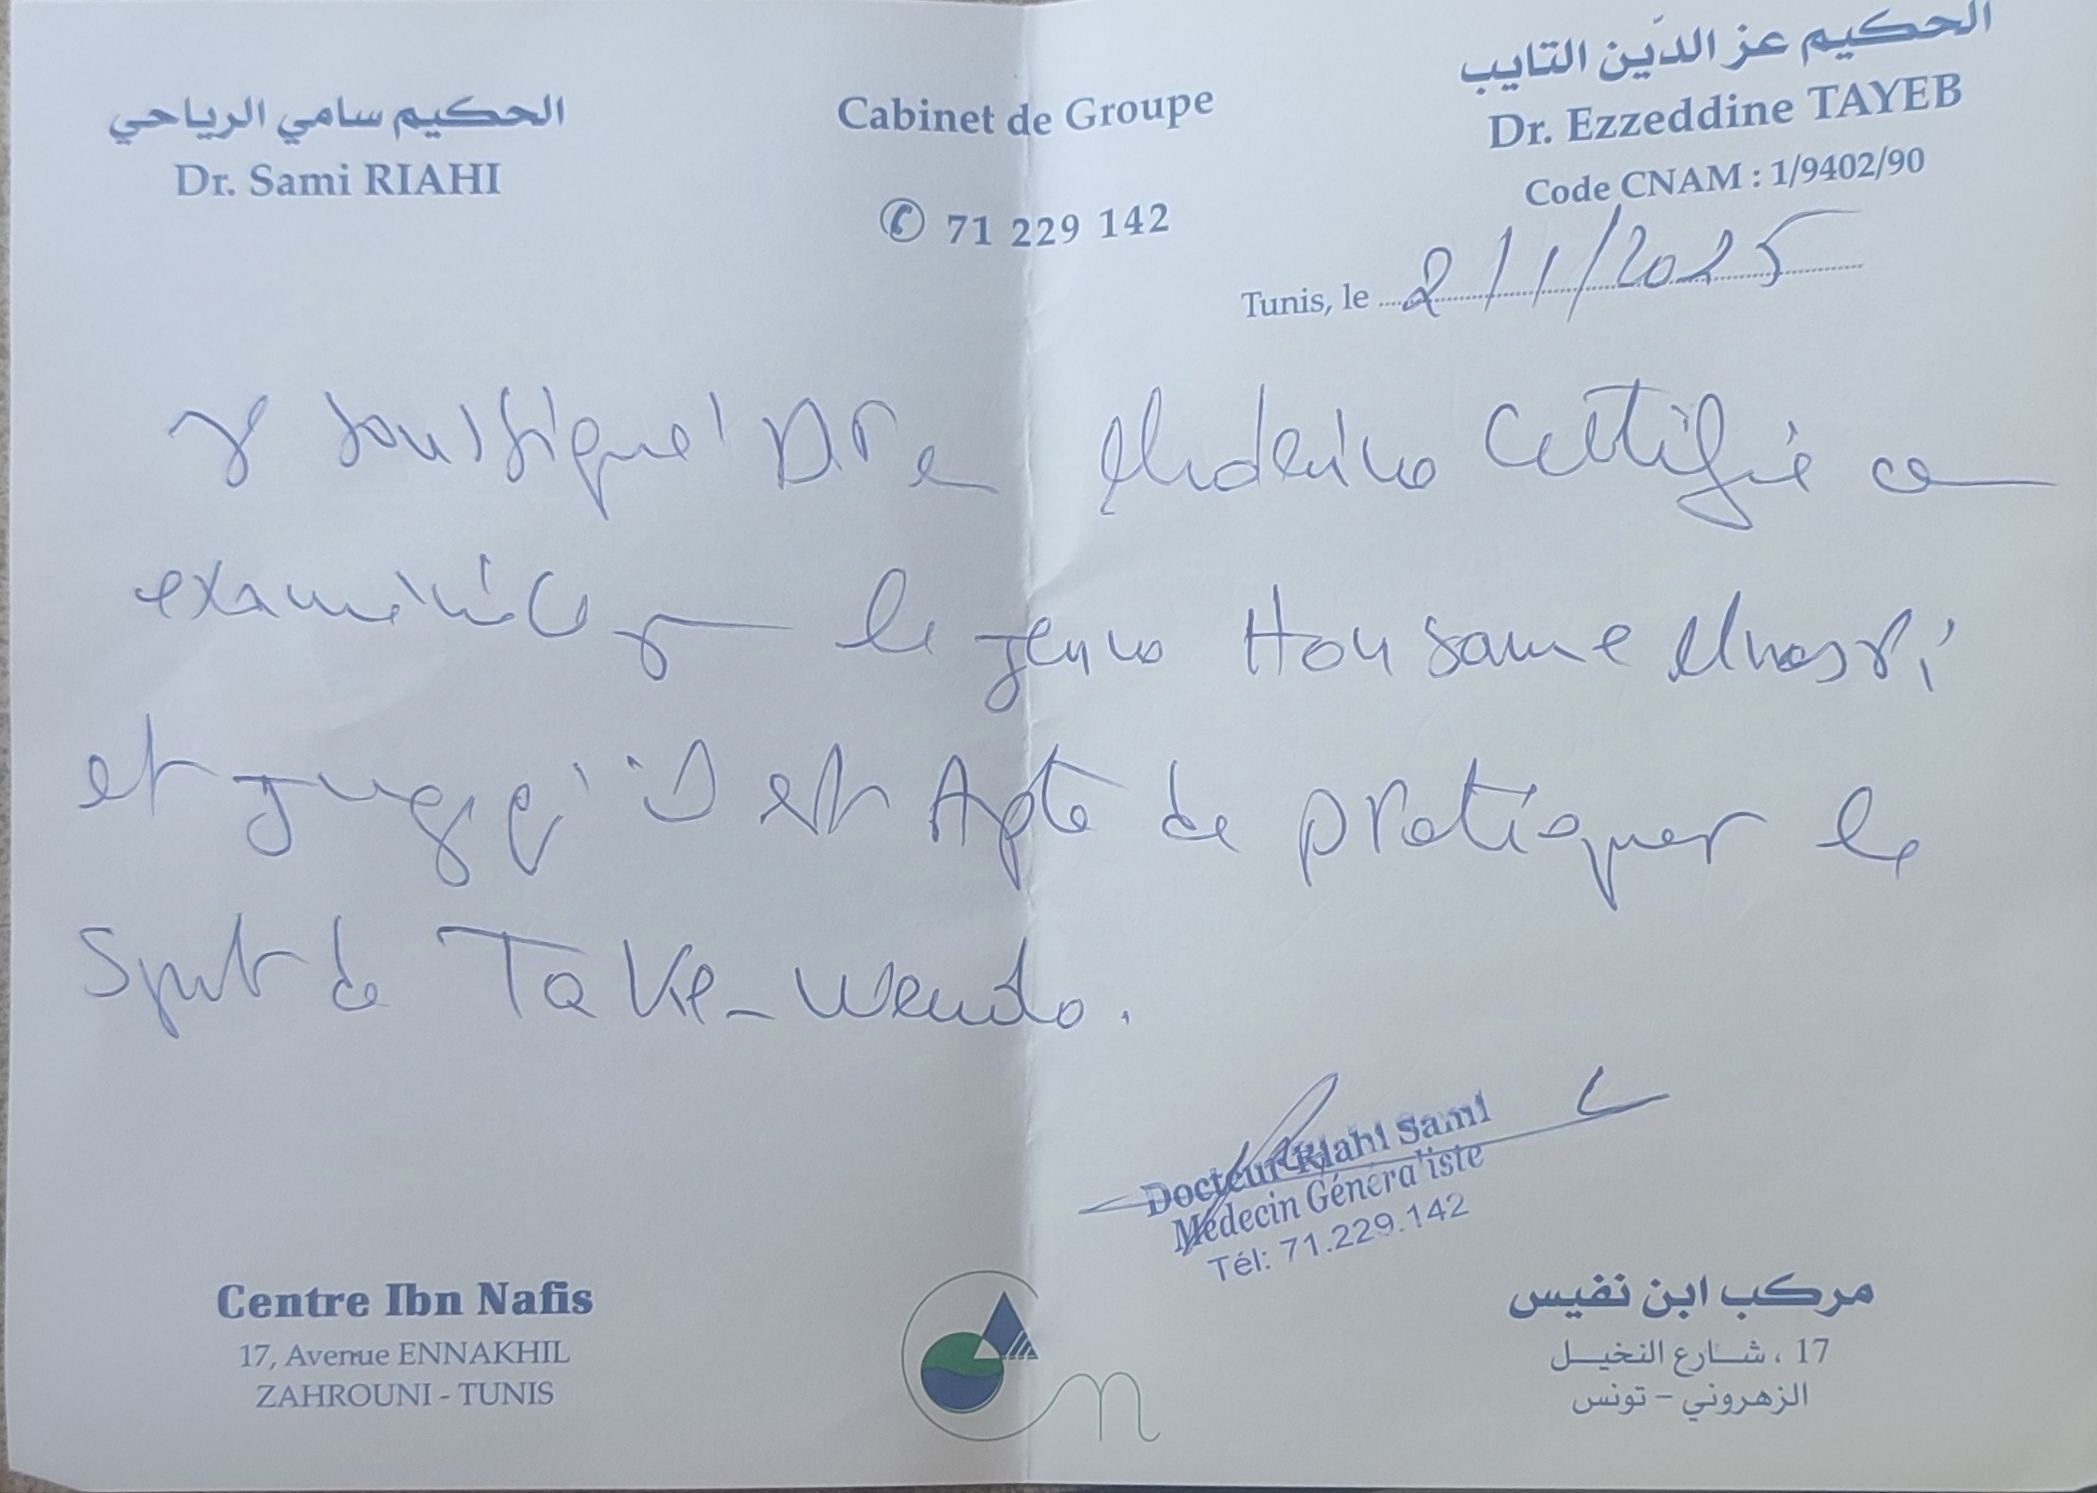 الحكيم سامي الرياحي
Dr. Sami RIAHI
Cabinet de Groupe
71 229 142
الحكيم عز الدّين التايب
Dr. Ezzeddine TAYEB
Code CNAM : 1/9402/90
Tunis, le 2/1/2025
soussigné Dr en Médecine Certifie
examiné le jeune Houssame
et juge qu'il est Apte de pratiquer le
Sport de Take-Wendo.
Docteur Riahi Sami
Médecin Généraliste
Tél: 71.229.142
Centre Ibn Nafis
17, Avenue ENNAKHIL
ZAHROUNI - TUNIS
مركب ابن نفيس
17 ، شارع النخيل
الزهروني - تونس